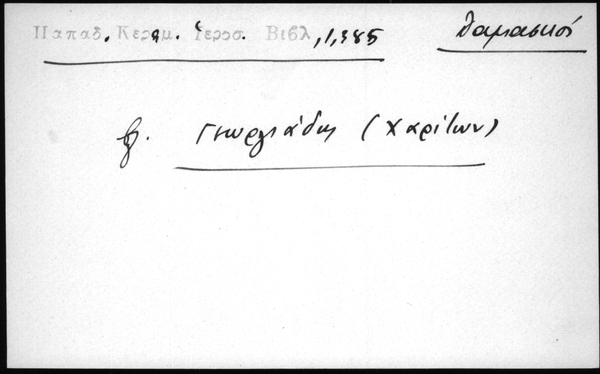 Παπαδ. Κεραμ. Ιεροσ. Βιβλ, 1,385 Δαμασκοί
βλ. Γεωργιάδης (Χαρίτων)